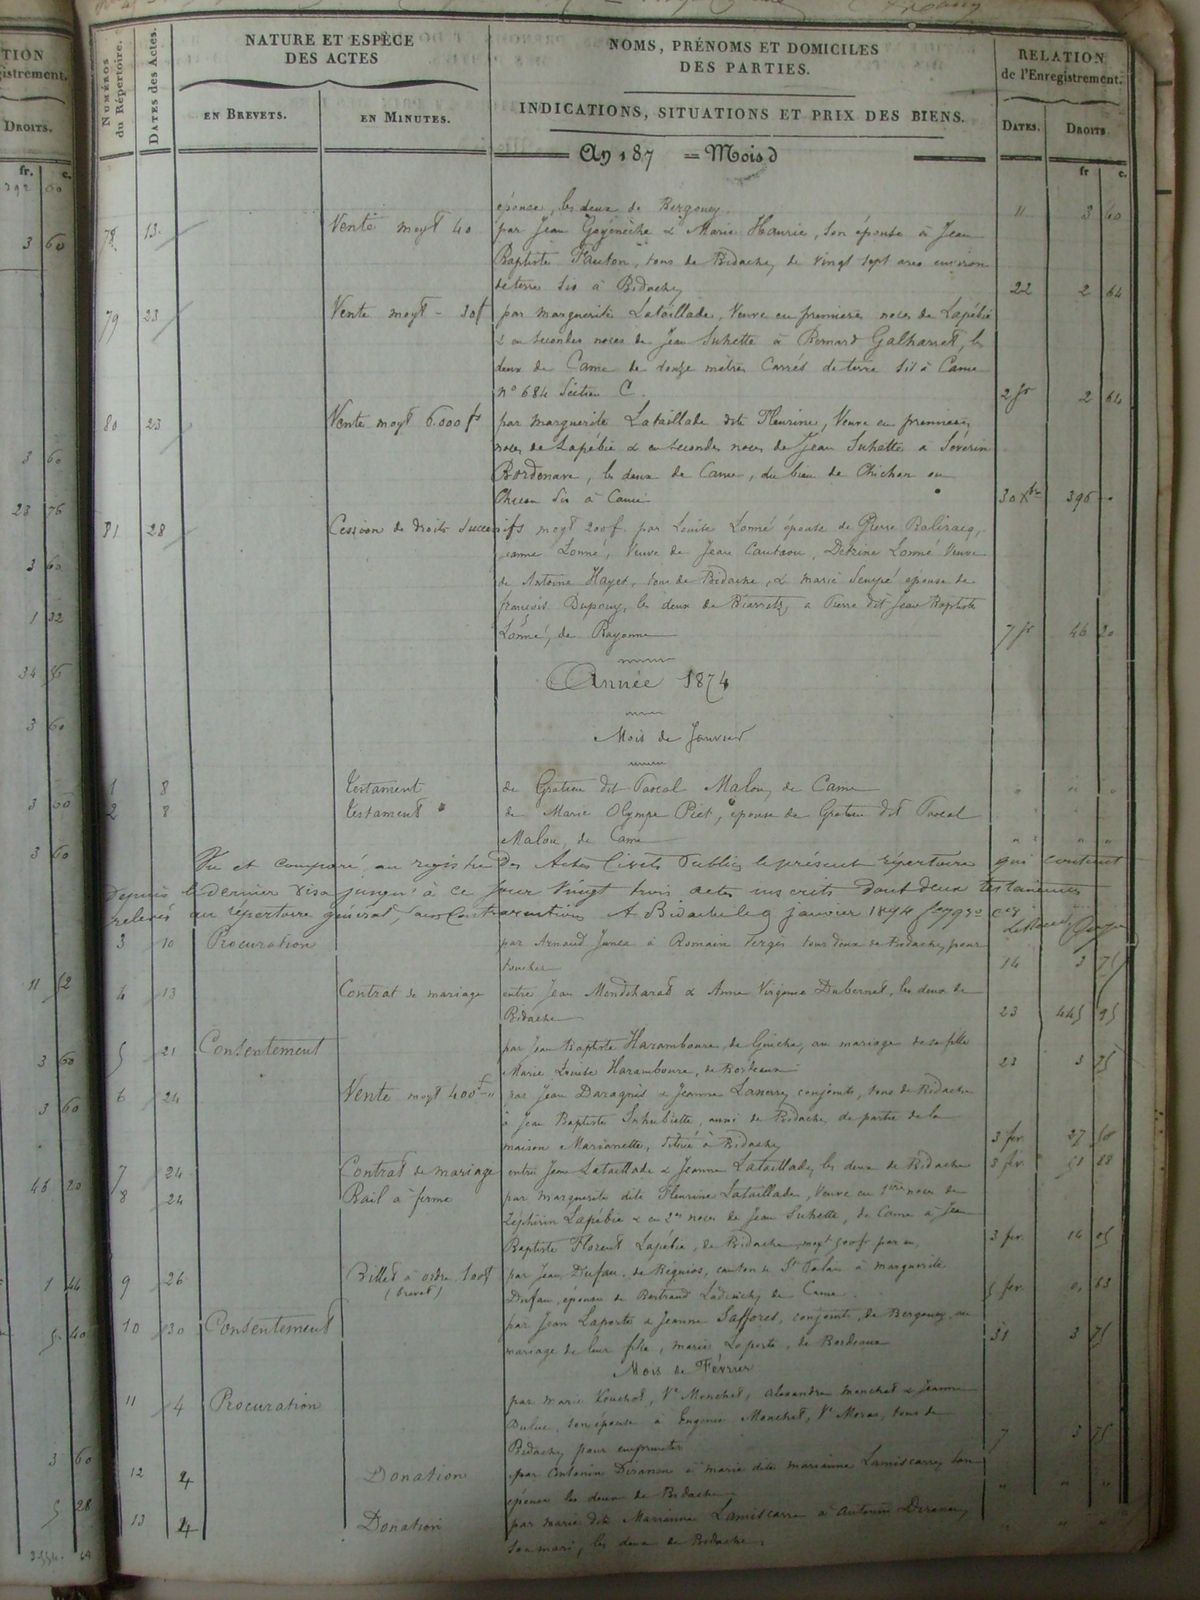 TION
istrement.
DROITS.
fr. c.
292 60
3 60
3 60
23 76
3 60
1 32
34
3 60
3 60
3 60
11 52
3 60
3 60
46 20
1 44
5 40
3 60
5 28
NUMÉROS du Répertoire.
DATES des Actes.
NATURE ET ESPÈCE
DES ACTES
EN BREVETS.
EN MINUTES.
NOMS, PRÉNOMS ET DOMICILES
DES PARTIES.
INDICATIONS, SITUATIONS ET PRIX DES BIENS.
RELATION
de l'Enregistrement.
DATES. DROITS
fr c.
An 187 = Mois d
épouse, les deux de Bergouey 11 3 60
78 13 Vente moyt 40 par Jean Goyenèche & Marie Haurie, son épouse à Jean
Baptiste Fauton, tous de Bidache, de vingt sept ares environ
de terre sis à Bidache 22 2 64
79 23 Vente moyt - 30f par Marguerite Lataillade, Veuve en premières noces de Lapébie
& en secondes noces de Jean Suhette à Bernard Galharret, les
deux de Came de douze mètres carrés de terre sis à Came
n° 684 Section C. 2 2 64
80 23 Vente moyt 6.000 fs par Marguerite Lataillade dite Fleurine, Veuve en premières
noces de Lapébie & en secondes noces de Jean Suhette à Séverin
Bordenave, les deux de Came, du bien de Chichon ou
sis à Came 30 Xbre 396 "
81 28 Cession de droits successifs moyt 200f par Louise Lonné épouse de Pierre Baliracq,
Jeanne Lonné, Veuve de Jean Cautaou, Lonné Veuve
de Antoine Hayet, tous de Bidache, & Marie Sempé épouse de
françois Dupouy, les deux de Biarritz, à Pierre dit Jean Baptiste
Lonné, de Bayonne 7 46 20
Année 1874
Mois de Janvier
1 8 Testament de Gratien dit Pascal Malou, de Came " " "
2 8 Testament de Marie Olympe Piet, épouse de Gratien dit Pascal
Malou de Came " " "
Vu et comparé au registre des Actes Civils Publics le présent répertoire qui contient
depuis le dernier visa jusqu'à ce jour vingt trois actes inscrits dont deux testaments
relevés au répertoire général, sans Contravention A Bidache le 9 janvier 1874
3 10 Procuration par Arnaud Junca à Romain Verges tous deux de Bidache, pour
toucher 14 3 75
4 13 Contrat de mariage entre Jean Mendiharat & Anne Virginie Dubernet, les deux de
Bidache 23 445 95
5 21 Consentement par Jean Baptiste Haramboure, de Guiche, au mariage de sa fille
Marie Louise Haramboure, de Bordeaux 23 3 75
6 24 Vente moyt 400f " par Jean Daragnès & Jeanne conjoints, tous de Bidache
à Jean Baptiste Inhubiette, aussi de Bidache, de partie de la
maison Marianette, située à Bidache 3 fer. 27 50
7 24 Contrat de mariage entre Jean Lataillade & Jeanne Lataillade, les deux de Bidache 3 fév. 51 88
8 24 Bail à ferme par Marguerite dite Fleurine Lataillade, Veuve en 1res noces de
Zéphirin Lapébie & en 2es noces de Jean Suhette, de Came à Jean
Baptiste Florent Lapébie, de Bidache moyt 500f par an 3 fer. 14 05
9 26 Billet à ordre 100f par Jean Dufau, de Béguios, canton de St Palais à Marguerite
(brevet)
Dufau, épouse de Bertrand de Came. 5 fev. 0, 63
10 30 Consentement par Jean Laporte & Jeanne Saffores, conjoints, de Bergouey, au
mariage de leur fille, Marie Laporte, de Bordeaux 31 3 75
Mois de Février
11 4 Procuration par Marie Vve Monchet, Alexandre Monchet & Jeanne
son épouse à Eugénie Monchet, Ve Moras, tous de
Bidache, pour emprunter 7 3 75
12 4 Donation par Antonin Diranou à Marie dite Marianne Lamiscarre, son
épouse les deux de Bidache " " "
13 4 Donation par Marie dite Marianne Lamiscarre à Antonin Diranou,
son mari, les deux de Bidache. " " "